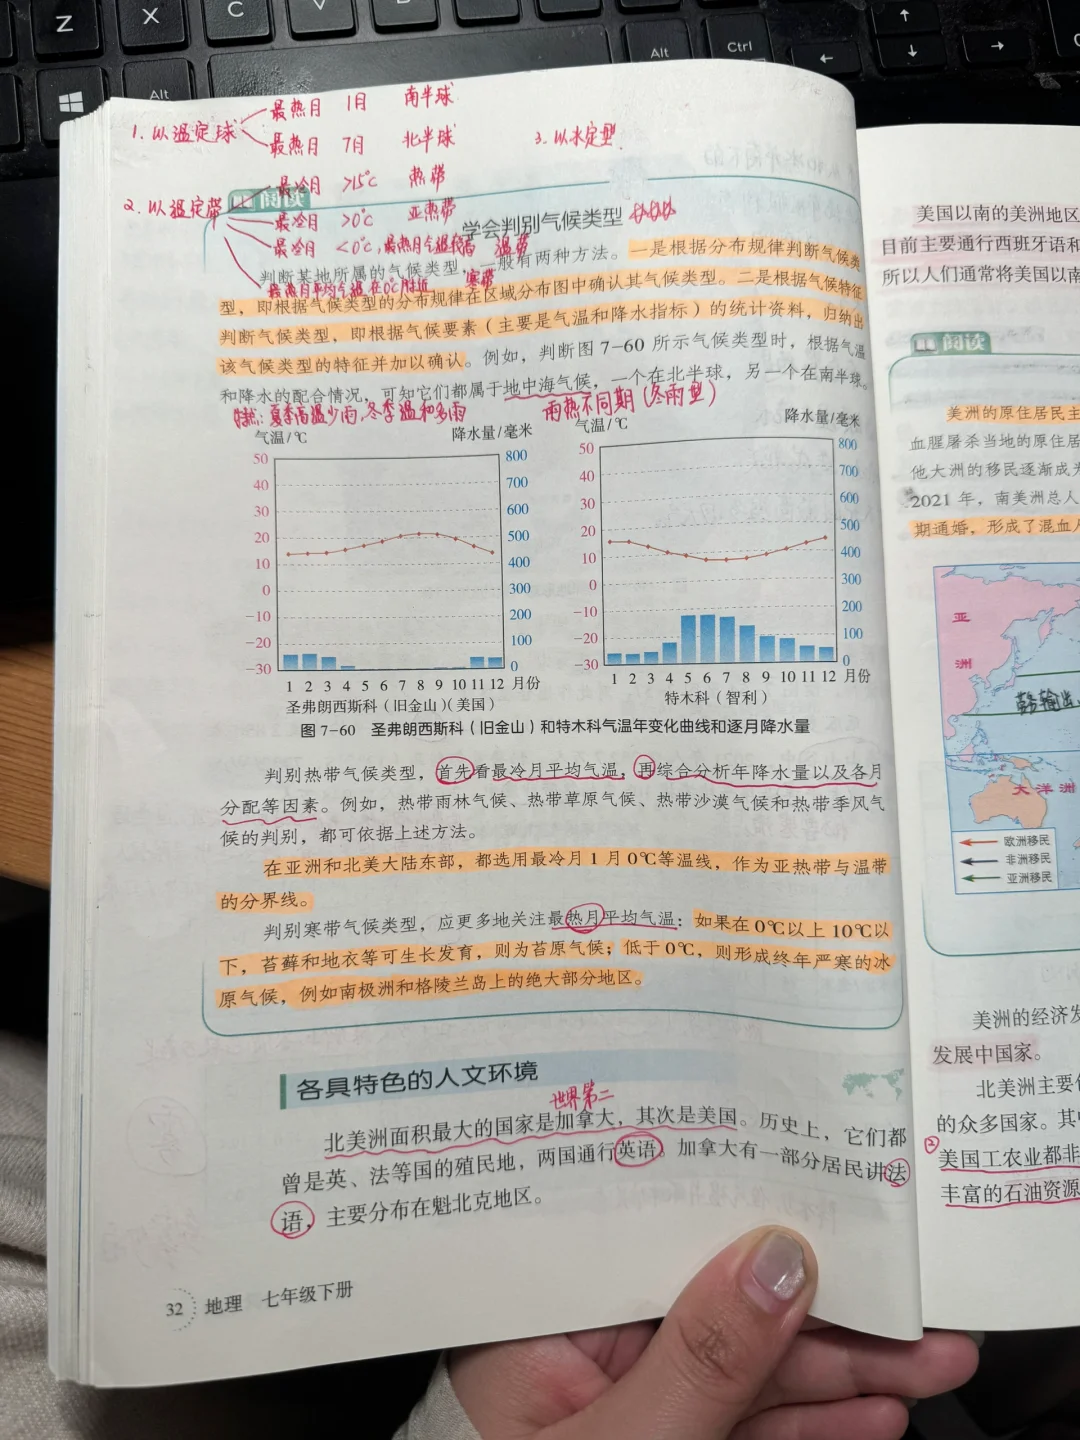 Z
X
C
V
Alt
Alt
Ctrl
1. 以温定球
最热月 1月 南半球
最热月 7月 北半球
3. 以水定型
2. 以温定带
最冷月 >15℃ 热带
最冷月 >0℃ 亚热带
最冷月 <0℃, 最热月气温较高 温带
最热月平均气温在0℃附近 寒带
阅读
学会判别气候类型
判断某地所属的气候类型，一般有两种方法。一是根据分布规律判断气候类
型，即根据气候类型的分布规律在区域分布图中确认其气候类型。二是根据气候特征
判断气候类型，即根据气候要素（主要是气温和降水指标）的统计资料，归纳出
该气候类型的特征并加以确认。例如，判断图 7-60 所示气候类型时，根据气温
和降水的配合情况，可知它们都属于地中海气候，一个在北半球，另一个在南半球。
夏季高温少雨,冬季温和多雨
雨热不同期（冬雨型）
气温/℃ 降水量/毫米
50 800
40 700
30 600
20 500
10 400
0 300
−10 200
−20 100
−30 0
1 2 3 4 5 6 7 8 9 10 11 12 月份
圣弗朗西斯科（旧金山）（美国）
气温/℃ 降水量/毫米
50 800
40 700
30 600
20 500
10 400
0 300
−10 200
−20 100
−30 0
1 2 3 4 5 6 7 8 9 10 11 12 月份
特木科（智利）
图 7-60 圣弗朗西斯科（旧金山）和特木科气温年变化曲线和逐月降水量
判别热带气候类型，首先看最冷月平均气温，再综合分析年降水量以及各月
分配等因素。例如，热带雨林气候、热带草原气候、热带沙漠气候和热带季风气
候的判别，都可依据上述方法。
在亚洲和北美大陆东部，都选用最冷月 1 月 0℃等温线，作为亚热带与温带
的分界线。
判别寒带气候类型，应更多地关注最热月平均气温：如果在 0℃以上 10℃以
下，苔藓和地衣等可生长发育，则为苔原气候；低于 0℃，则形成终年严寒的冰
原气候，例如南极洲和格陵兰岛上的绝大部分地区。
各具特色的人文环境
世界第二
北美洲面积最大的国家是加拿大，其次是美国。历史上，它们都
曾是英、法等国的殖民地，两国通行英语。加拿大有一部分居民讲法
语，主要分布在魁北克地区。
32 地理 七年级下册
美国以南的美洲地区
目前主要通行西班牙语和
所以人们通常将美国以南
阅读
美洲的原住居民主
血腥屠杀当地的原住居
他大洲的移民逐渐成为
2021 年，南美洲总人
期通婚，形成了混血人
亚
洲
大洋洲
欧洲移民
非洲移民
亚洲移民
美洲的经济发
发展中国家。
北美洲主要包
的众多国家。其
②
美国工农业都非
丰富的石油资源